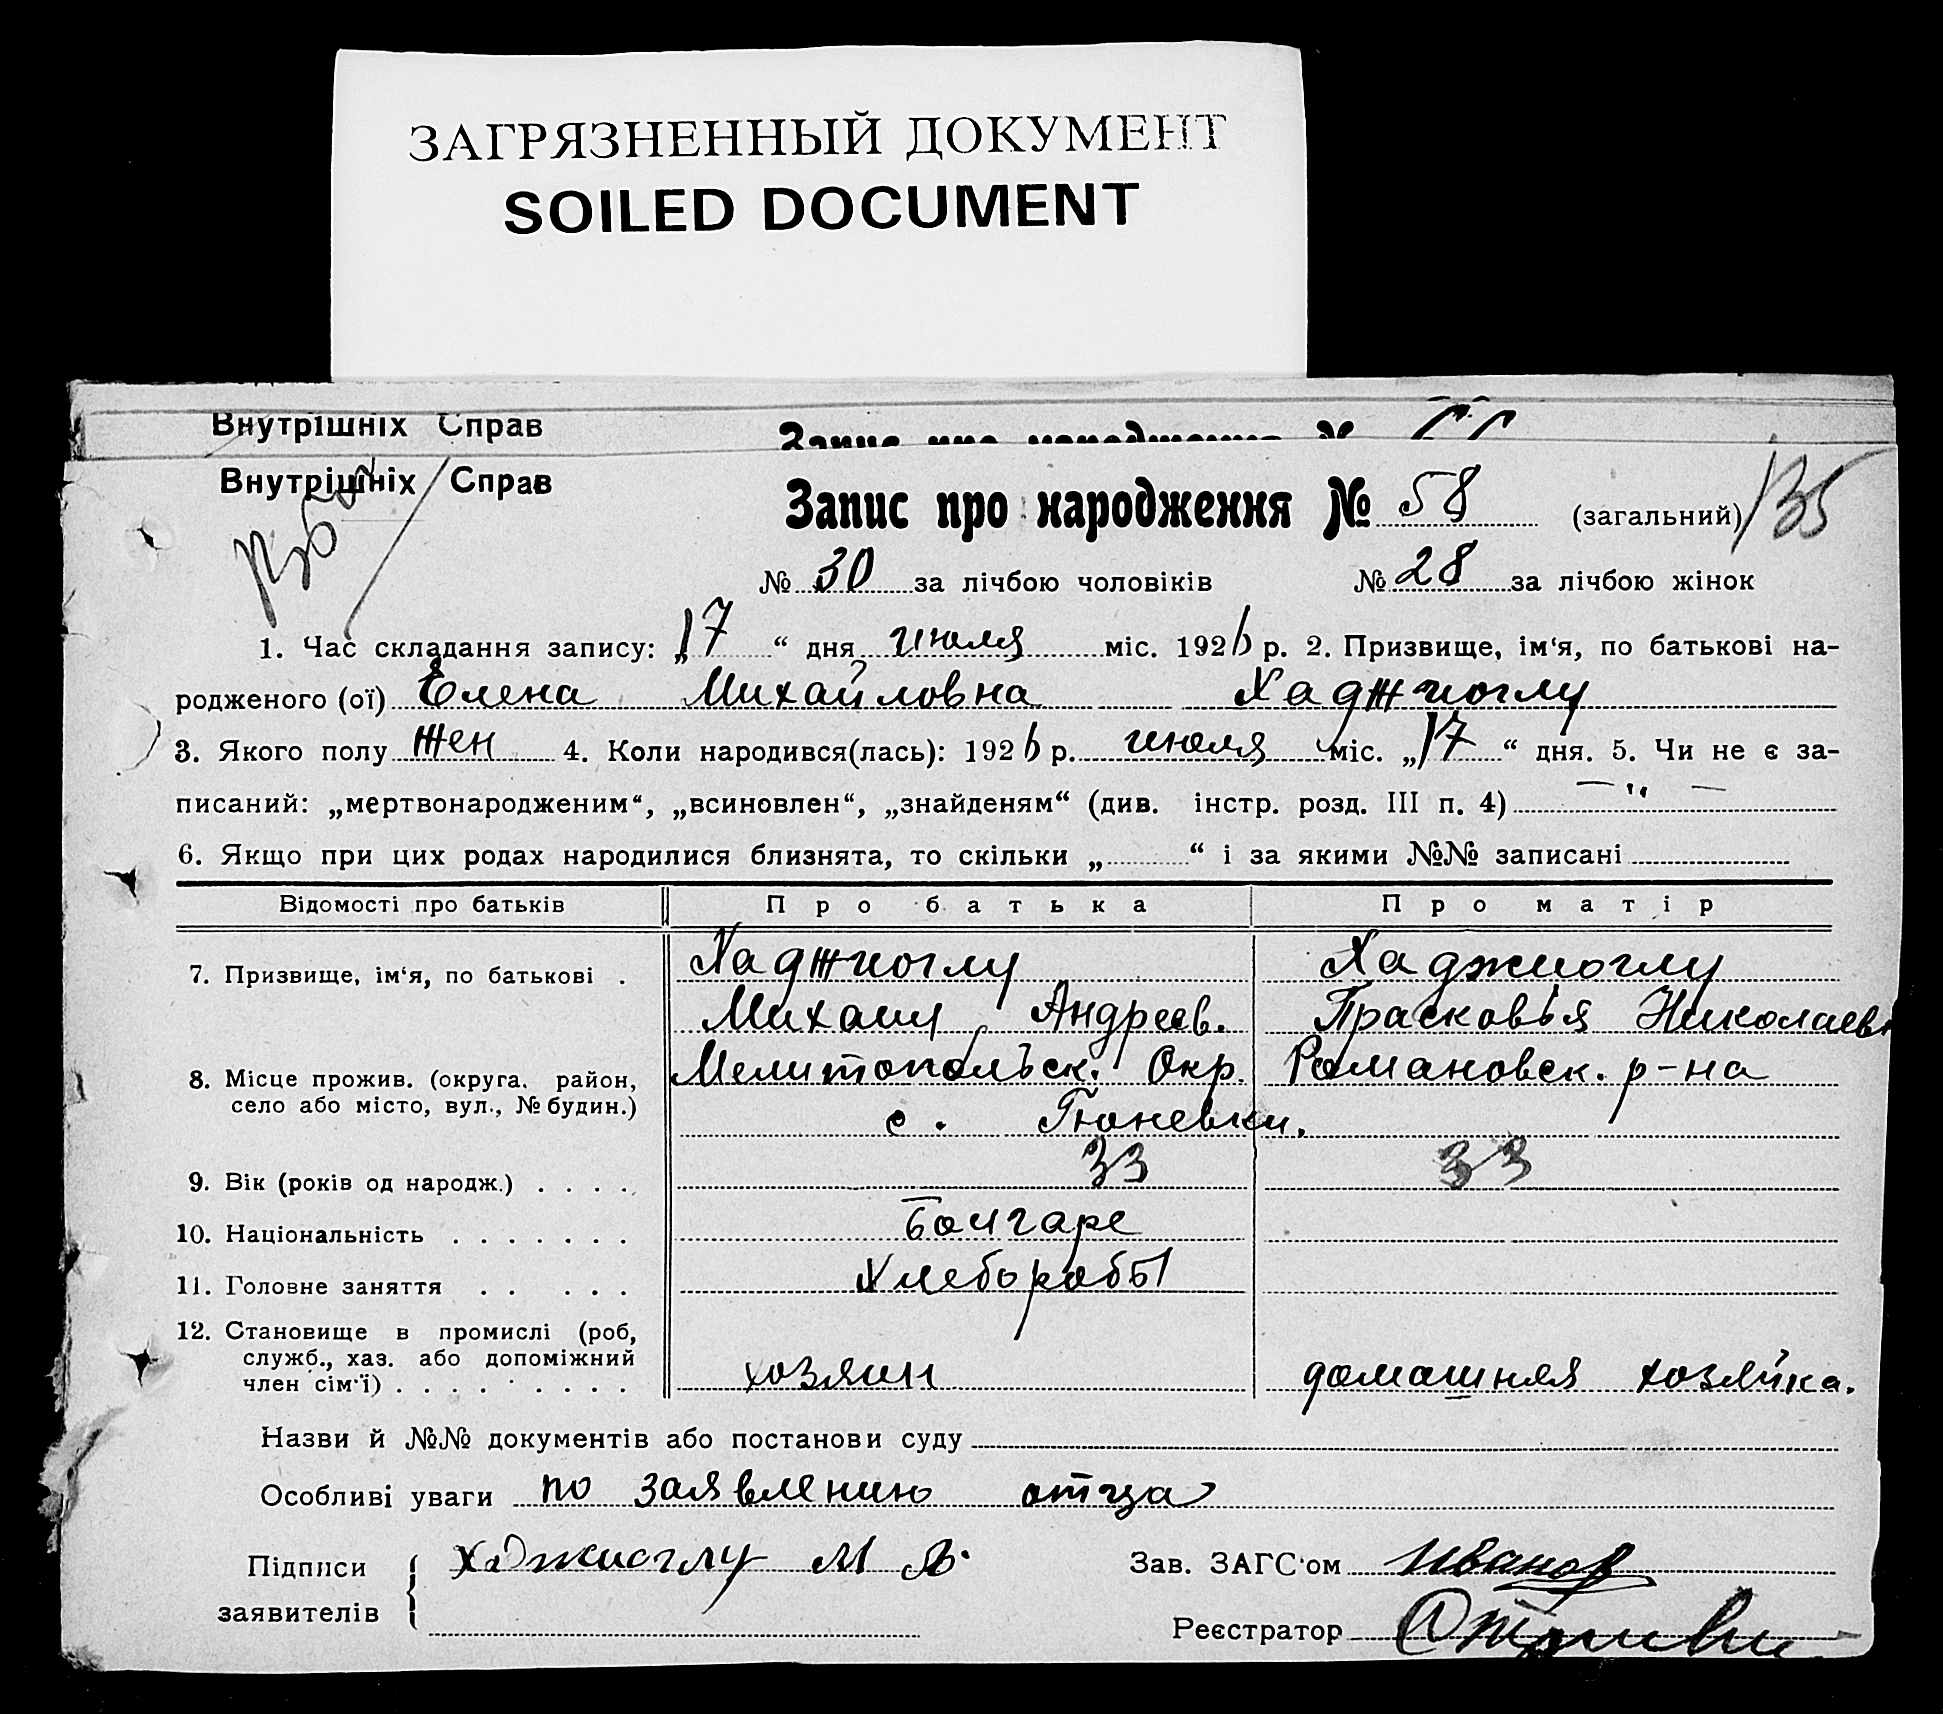 ЗАГРЯЗНЕННЫЙ ДОКУМЕНТ
SOILED DOCUMENT
Внутрішніх Справ
Запис про народження №
Внутрішніх Справ
Запис про народження № 58 (загальний) 135
№ 30 за лічбою чоловіків № 28 за лічбою жінок
1. Час складання запису: „17“ дня июля міс. 1926 р. 2. Призвище, ім‘я, по батькові на-
родженого (ої) Елена Михайловна Хаджиоглу
3. Якого полу жен 4. Коли народився(лась): 1926 р. июля міс. „17“ дня. 5. Чи не є за-
писаний: „мертвонародженим“, „всиновлен“, „знайденям“ (див. інстр. розд. III п. 4) — " —
6. Якщо при цих родах народилися близнята, то скільки „ “ і за якими №№ записані
Відомості про батьків Про батька Про матір
7. Призвище, ім‘я, по батькові . Хаджиоглу Хаджиоглу
Михаил Андреев. Прасковья Николаевн
8. Місце прожив. (округа, район, Мелитопольск. Окр. Романовск. р-на
село або місто, вул., № будин.) с. Гюневки.
9. Вік (років од народж.) . . . . 33 33
10. Національність . . . . . . . Болгаре
11. Головне заняття . . . . . Хлеборобы
12. Становище в промислі (роб,
служб., хаз. або допоміжний
член сім‘ї) . . . . . . . . . хозяин домашняя хозяйка.
Назви й №№ документів або постанови суду
Особливі уваги по заявлению отца
Підписи Хаджиоглу М А. Зав. ЗАГС‘ом Иванов
заявителів
Реєстратор